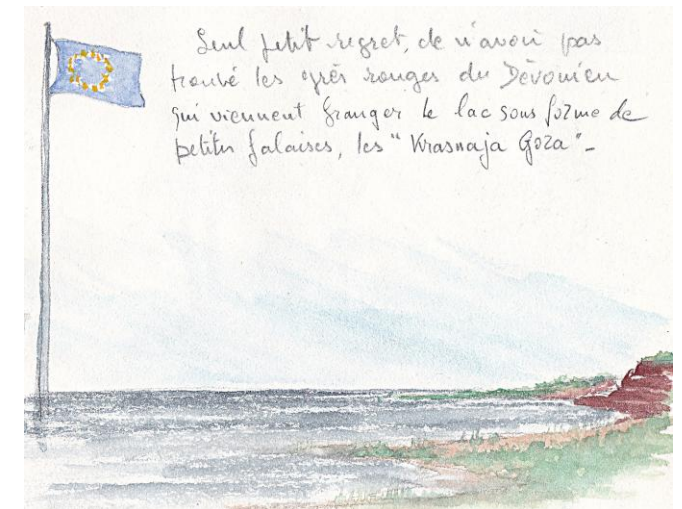 Seul petit regret, de n'avoir pas
trouvé les grès rouges du Dévonien
qui viennent franger le lac sous forme de
petites falaises, les "Krasnaja Gora"-